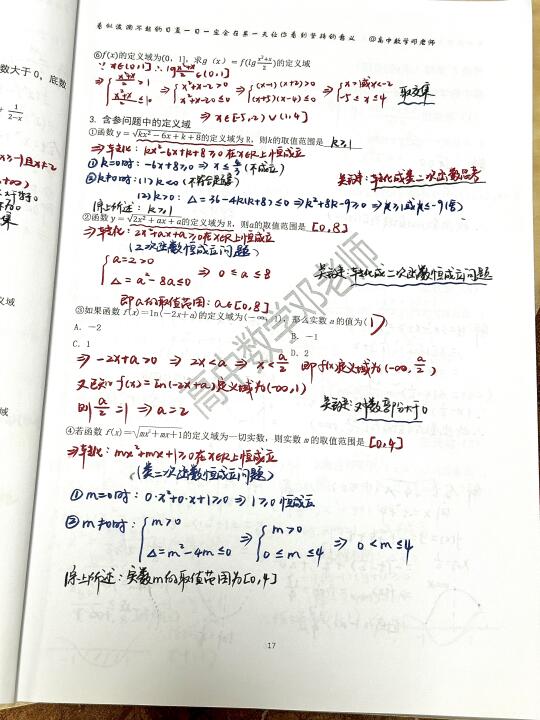 看似波澜不起的日复一日一定会在某一天让你看到坚持的意义 @高中数学邓老师
⑥f(x)的定义域为(0, 1], 求g(x)=f(lg (x²+x)/2)的定义域
∵x∈(0,1] ∴ lg (x²+x)/2 ∈(0,1]
取交集
⇒ x∈[-5,-2)∪(1,4]
3. 含参问题中的定义域
①函数 y=√(kx²-6x+k+8)的定义域为 R, 则k的取值范围是 k≥1
⇒转化: kx²-6x+k+8≥0在x∈R上恒成立
①k=0时: -6x+8≥0 ⇒ x≤4/3 (不成立)
关键: 转化成类二次函数思考
②k≠0时: (1) k<0 (不符合题意)
(2) k>0: △=36-4k(k+8)≤0 ⇒ k²+8k-9≥0 ⇒ k≥1或k≤-9(舍)
综上所述: k≥1
②函数 y=√(2x²+ax+a)的定义域为 R, 则a的取值范围是 [0,8]
⇒转化: 2x²+ax+a≥0在x∈R上恒成立
(二次函数恒成立问题)
a=2>0
△=a²-8a≤0
⇒ 0≤a≤8
关键: 转化成二次函数恒成立问题
即a的取值范围: a∈[0,8]
③如果函数 f(x)=ln(-2x+a)的定义域为(-∞, 1), 那么实数 a的值为( D )
A. -2
B. -1
C. 1
D. 2
⇒ -2x+a>0 ⇒ 2x<a ⇒ x<a/2 即f(x)定义域为(-∞, a/2)
又已知 f(x)=ln(-2x+a)定义域为(-∞,1)
则 a/2=1 ⇒ a=2
关键: 对数真部分大于0
④若函数 f(x)=√(mx²+mx+1)的定义域为一切实数, 则实数 m的取值范围是 [0,4]
⇒转化: mx²+mx+1≥0在x∈R上恒成立
(类二次函数恒成立问题)
①m=0时: 0·x²+0·x+1≥0 ⇒ 1≥0 恒成立
②m≠0时: { m>0 ⇒ { m>0
△=m²-4m≤0 0≤m≤4 ⇒ 0<m≤4
综上所述: 实数m的取值范围为[0,4]
高中数学邓老师
17